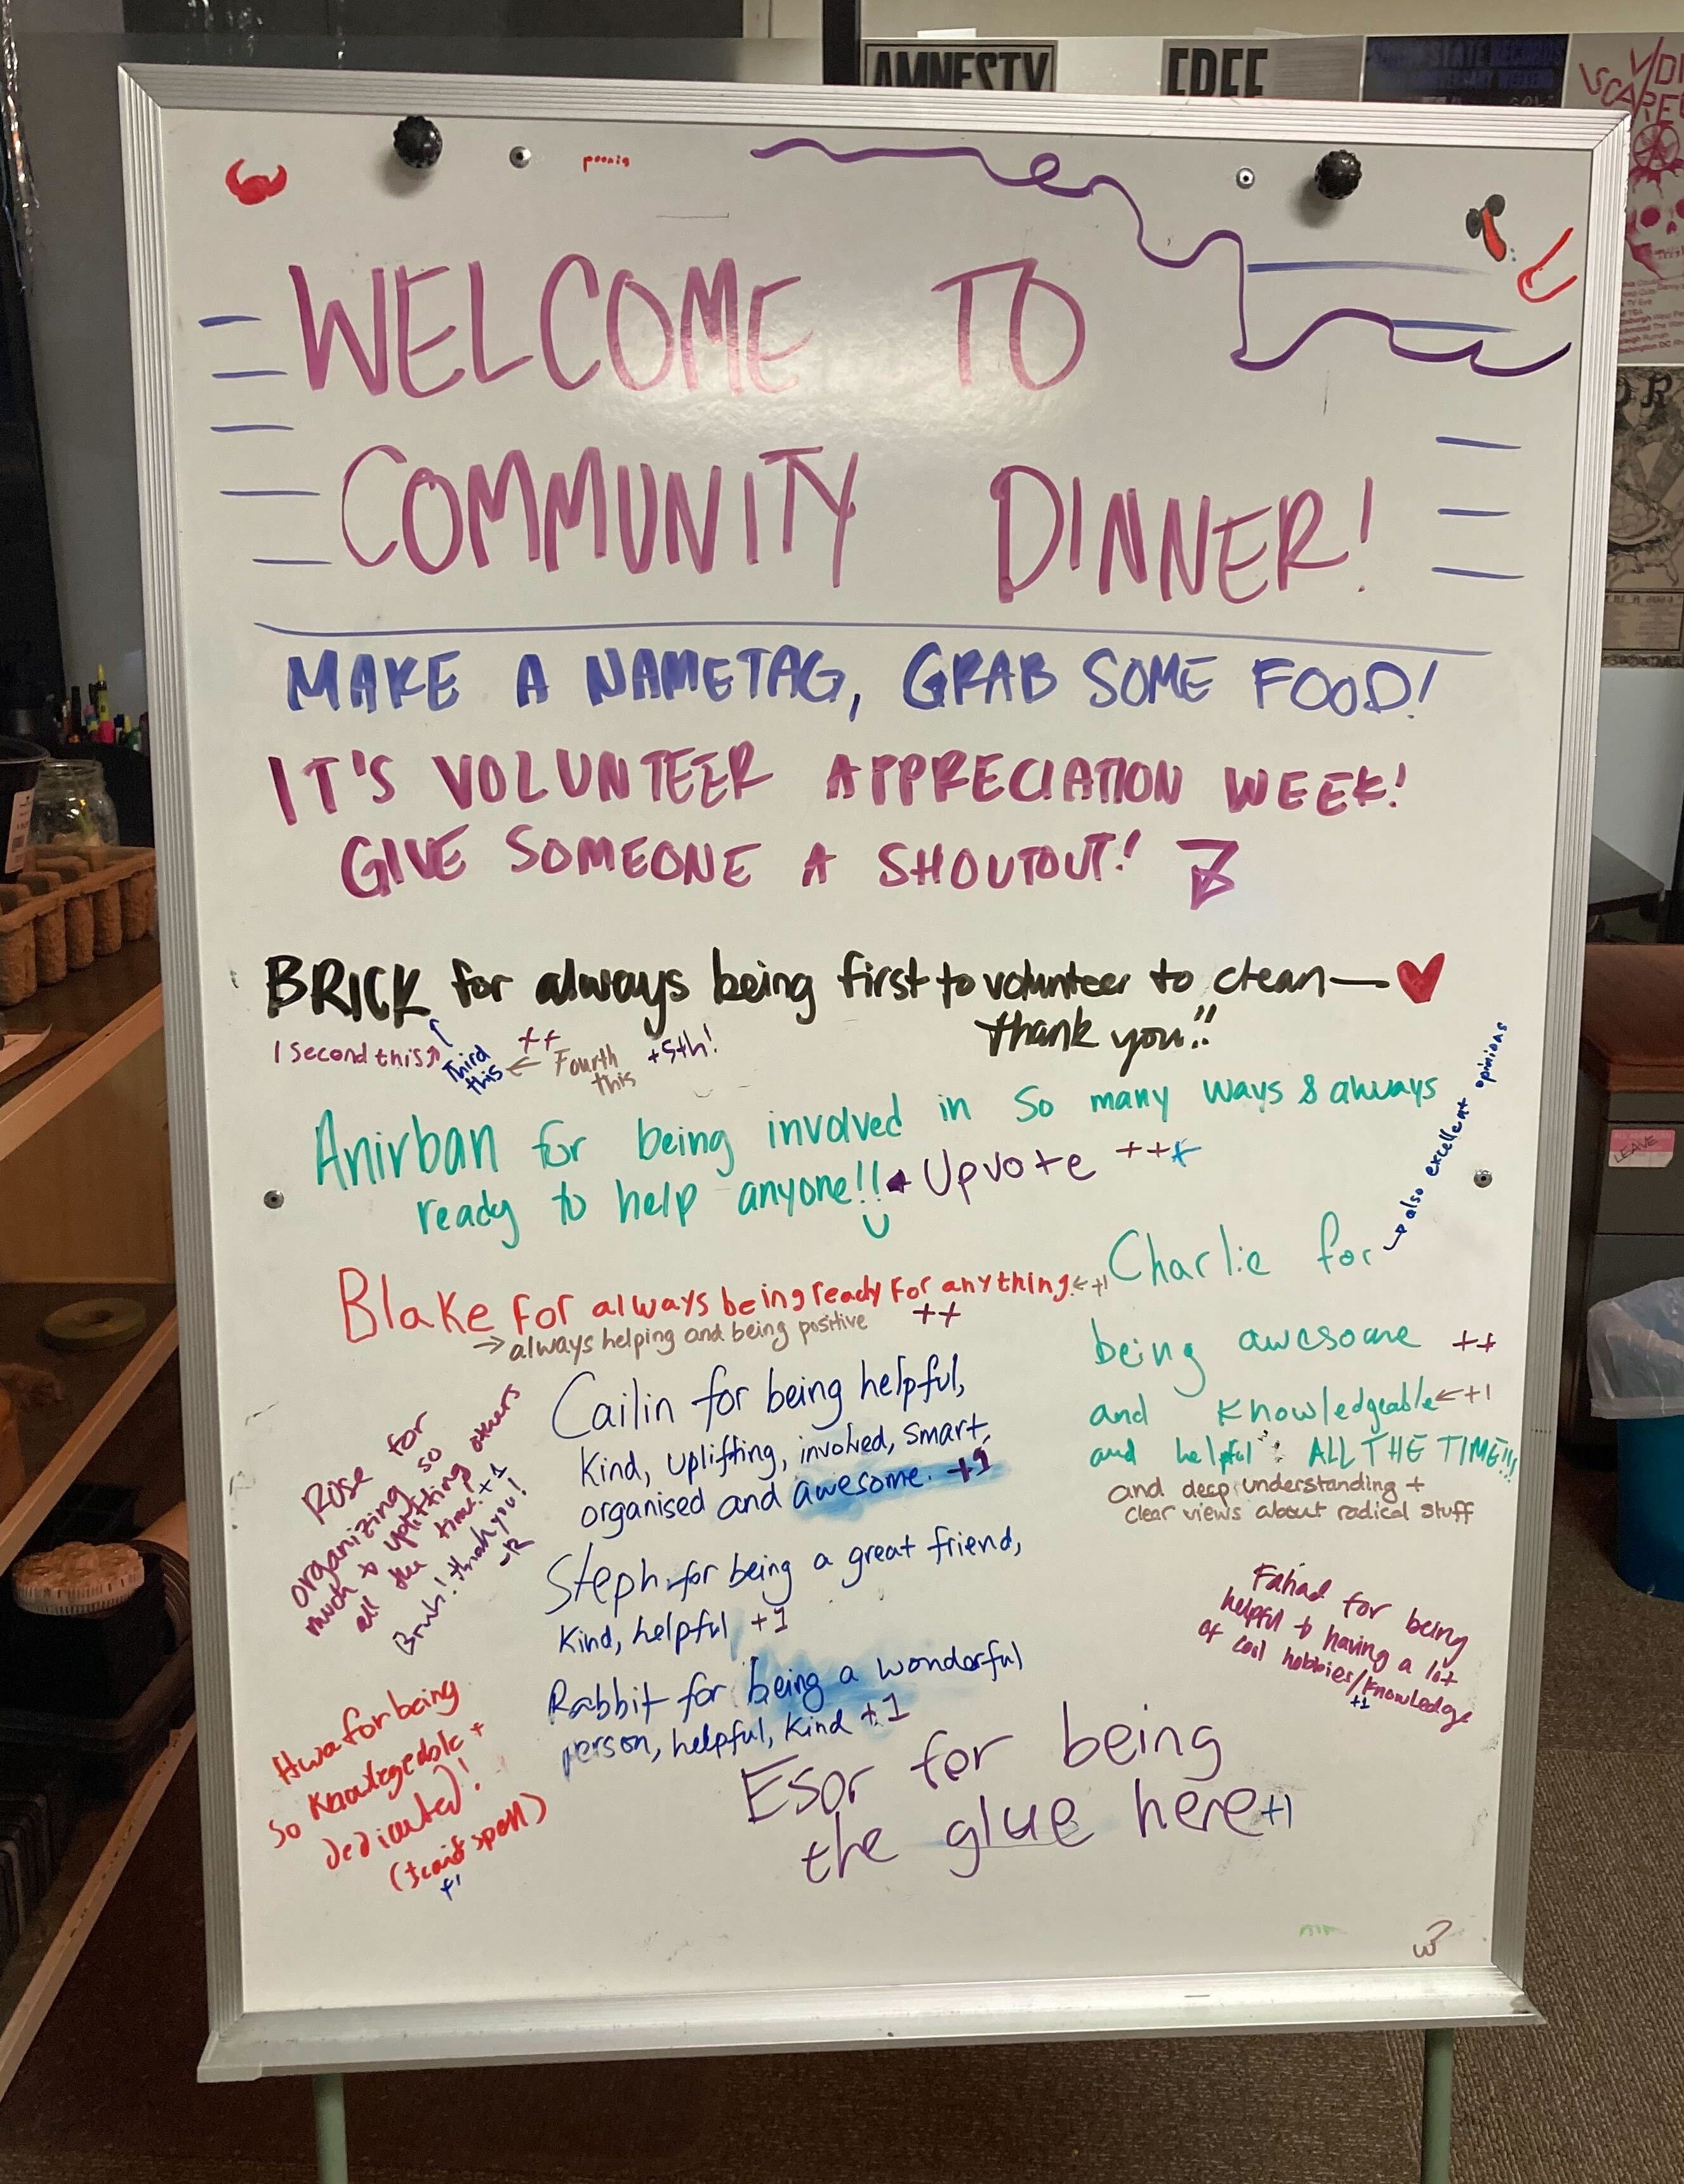 AMNESTY
FREE
STATE RECORDS
WELCOME TO
COMMUNITY DINNER!
MAKE A NAMETAG, GRAB SOME FOOD!
IT'S VOLUNTEER APPRECIATION WEEK!
GIVE SOMEONE A SHOUTOUT!
BRICK for always being first to volunteer to clean—
thank you!!
I second this
Third
this
++
Fourth
this
+5th!
Anirban for being involved in so many ways & always
ready to help anyone!!
Upvote +++
Charlie for
also excellent opinions
being awesome ++
and knowledgeable +1
and helpful ALL THE TIME!!!
and deep understanding +
clear views about radical stuff
Blake for always being ready for anything +1
++
always helping and being positive
Cailin for being helpful,
kind, uplifting, involved, smart,
organised and awesome. +1
Rose for
organizing so
much to uplifting others
all the time. +1
Bruh! thank you!
-R
Steph for being a great friend,
kind, helpful +1
Rabbit for being a wonderful
person, helpful, kind +1
Fahad for being
helpful + having a lot
of cool hobbies/knowledge
+1
Hwa for being
so knowlegedble +
dedicated!
(I cant spell)
+1
Esor for being
the glue here +1
LEAVE